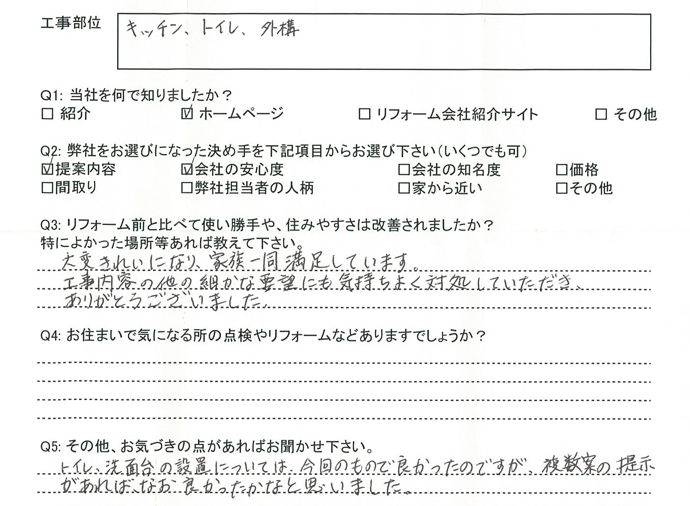 工事部位
キッチン、トイレ、外構
Q1: 当社を何で知りましたか？
□ 紹介 ☑ ホームページ □ リフォーム会社紹介サイト □ その他
Q2: 弊社をお選びになった決め手を下記項目からお選び下さい（いくつでも可）
☑提案内容 ☑会社の安心度 □会社の知名度 □価格
□間取り □弊社担当者の人柄 □家から近い □その他
Q3: リフォーム前と比べて使い勝手や、住みやすさは改善されましたか？
特によかった場所等あれば教えて下さい。
大変きれいになり、家族一同満足しています。
工事内容の他の細かな要望にも気持ちよく対処していただき、
ありがとうございました。
Q4: お住まいで気になる所の点検やリフォームなどありますでしょうか？
Q5: その他、お気づきの点があればお聞かせ下さい。
トイレ、洗面台の設置については、今回のもので良かったのですが、複数案の提示
があれば、なお良かったかなと思いました。